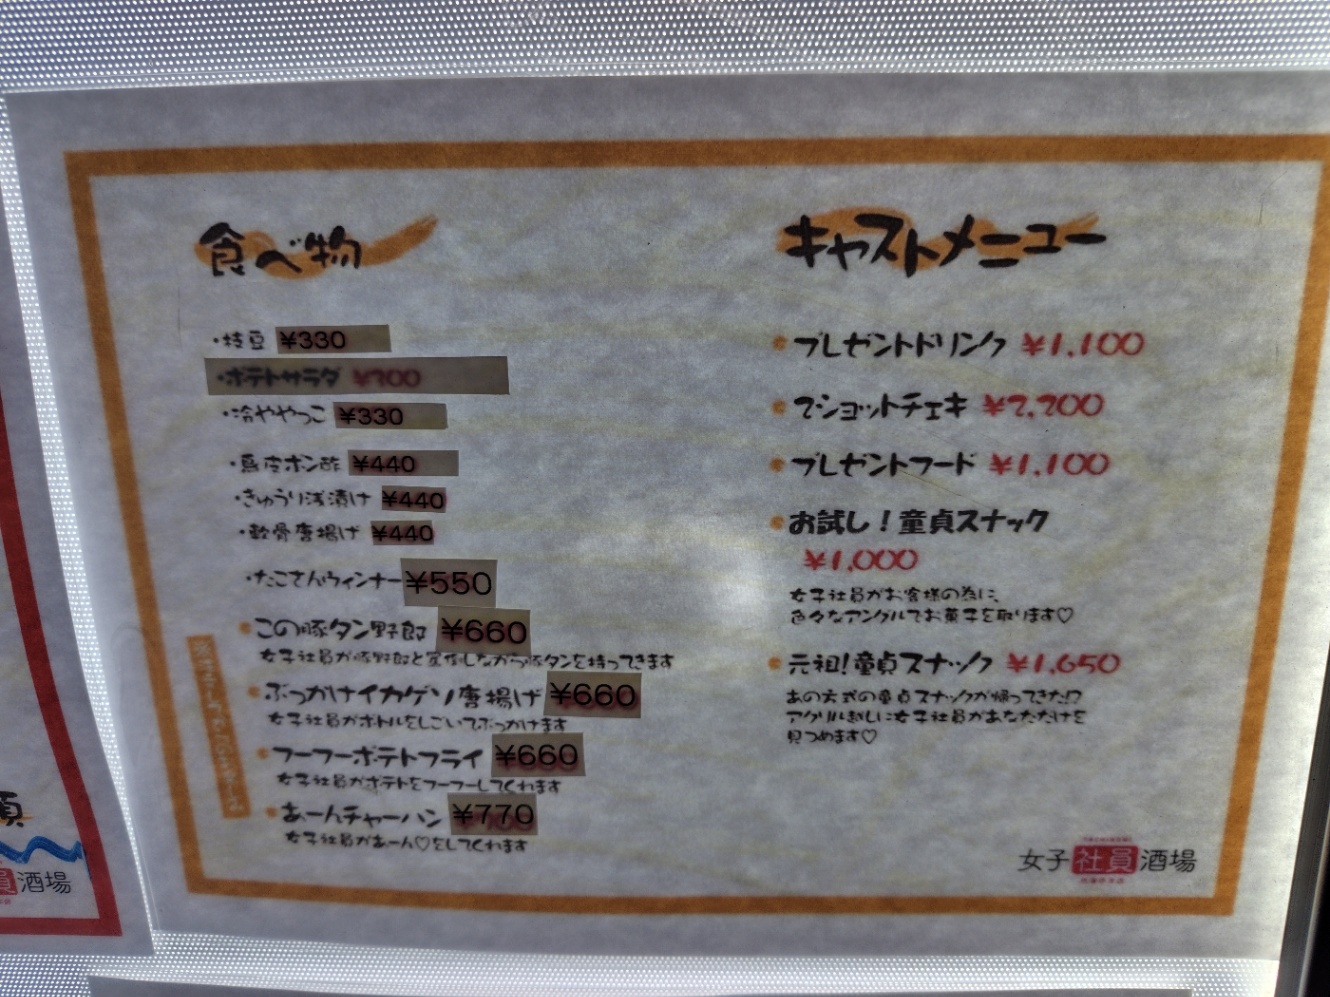 食べ物
・枝豆 ¥330
・ポテトサラダ ¥300
・冷ややっこ ¥330
・鳥皮ポン酢 ¥440
・きゅうり浅漬け ¥440
・軟骨唐揚げ ¥440
・たこさんウィンナー ¥550
この豚タン野郎 ¥660
女子社員が豚野郎と罵倒しながら豚タンを持ってきます
ぶっかけイカゲソ唐揚げ ¥660
女子社員がボトルをしごいてぶっかけます
フーフーポテトフライ ¥660
女子社員がポテトをフーフーしてくれます
あーんチャーハン ¥770
女子社員があーん♡をしてくれます
キャストメニュー
プレゼントドリンク ¥1,100
2ショットチェキ ¥2,200
プレゼントフード ¥1,100
お試し！童貞スナック
¥1,000
女子社員がお客様の為に、
色々なアングルでお菓子を取ります♡
元祖！童貞スナック ¥1,650
あの方式の童貞スナックが帰ってきた!?
アクリル越しに女子社員があなただけを
見つめます♡
女子社員酒場
員酒場